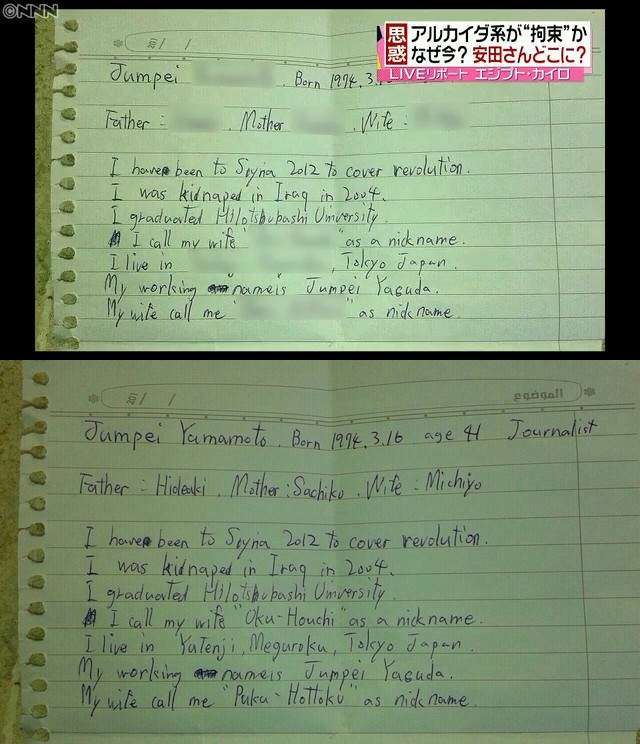 ©NNN
思惑
アルカイダ系が“拘束”か
なぜ今? 安田さんどこに?
LIVEリポート エジプト・カイロ
Jumpei , Born 1974.3.
Father = , Mother , Wife :
I have been to Syria 2012 to cover revolution.
I was kidnaped in Iraq in 2004.
I graduated Hitotsubashi University
I call my wife " " as a nickname.
I live in , Tokyo Japan.
My working "name" is Jumpei Yasuda.
My wife call me " " as nickname.
/ /
الموضوع
Jumpei Yamamoto, Born 1974.3.16 age 41 Journalist
Father = Hideaki, Mother : Sachiko, Wife = Michiyo
I have been to Syria 2012 to cover revolution.
I was kidnaped in Iraq in 2004.
I graduated Hitotsubashi University
I call my wife "Oku-Houchi" as a nickname.
I live in Yutenji, Meguroku, Tokyo Japan.
My working name is Jumpei Yasuda.
My wife call me "Puku-Hottoku" as nickname.